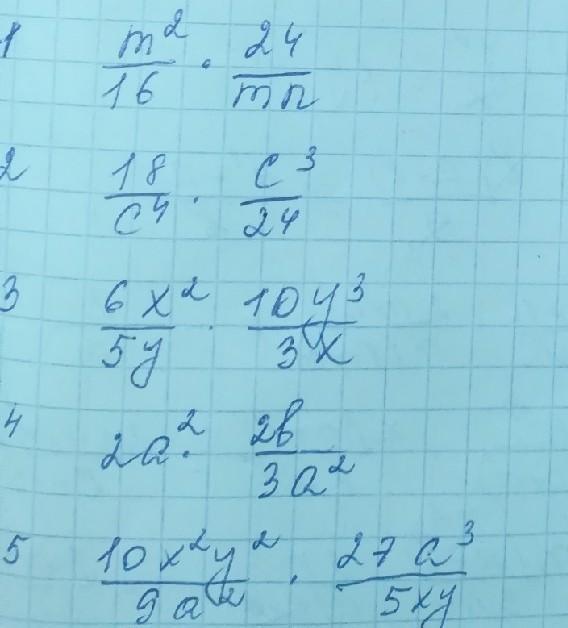 1 m²/16 · 24/mn
2 18/c⁴ · c³/24
3 6x²/5y · 10y³/3x
4 2a² · 2b/3a²
5 10x²y²/9a² · 27a³/5xy